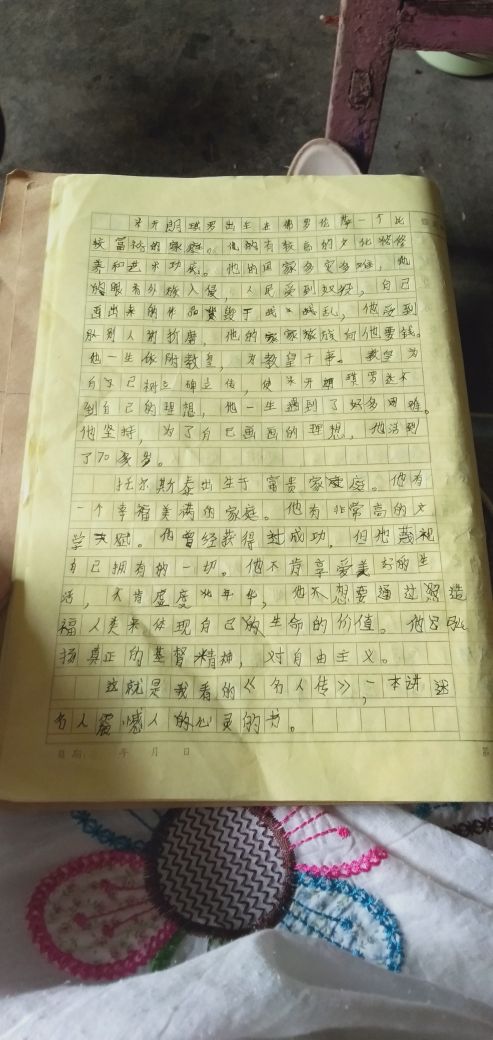 米开朗琪罗出生在佛罗伦萨一个比
较富裕的家庭。他的有较高的文化
养和艺术功底。他的国家多灾多难，他
的眼看外族入侵，人民受到奴役，自己
画出来的作品毁于战火战乱，他受到
别人的折磨，他的家家族成向他要钱。
他一生依附教皇，为教皇干事。教皇为
自己树立碑立传，使米开朗琪罗达不
到自己的理想，他一生遇到了好多困难。
他坚持，为了自己画画的理想，他活到
了70多岁。
托尔斯泰出生于富贵家庭。他有
一个幸福美满的家庭。他有非常高的文
学天赋。他曾经获得过成功，但他蔑视
自己拥有的一切。他不肯享受美好的生
活，不肯虚度此年华，他不想要通过
福人类来体现自己的生命的价值。他
扬真正的基督精神，对自由主义。
这就是我看的《名人传》，一本讲述
名人震憾人的心灵的书。
日期 年 月 日
第